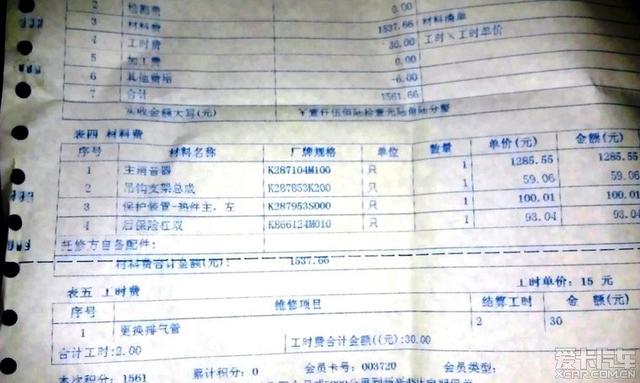 2 检测费 0.00
3 材料费 1537.66 材料清单
4 工时费 30.00 工时×工时单价
5 加工费 0.00
6 其他费用 -6.00
7 合计 1561.66
实收金额大写(元) ￥壹仟伍佰陆拾壹元陆角陆分整
表四 材料费
序号 材料名称 厂牌规格 单位 数量 单价(元) 金额(元)
1 主消音器 K287104M100 只 1 1285.55 1285.55
2 吊钩支架总成 K287853K200 只 1 59.06 59.06
3 保护装置-热件主、左 K287953S000 只 1 100.01 100.01
4 后保险杠双 K866124M010 只 1 93.04 93.04
托修方自备配件:
材料费合计金额(元): 1537.66
表五 工时费 工时单价: 15 元
序号 维修项目 结算工时 金 额(元)
1 更换排气管 2 30
合计工时:2.00 工时费合计金额((元):30.00
本次积分: 1561 累计积分: 0 会员卡号: 003720 会员类型:
爱卡汽车
XCAR.COM.CN